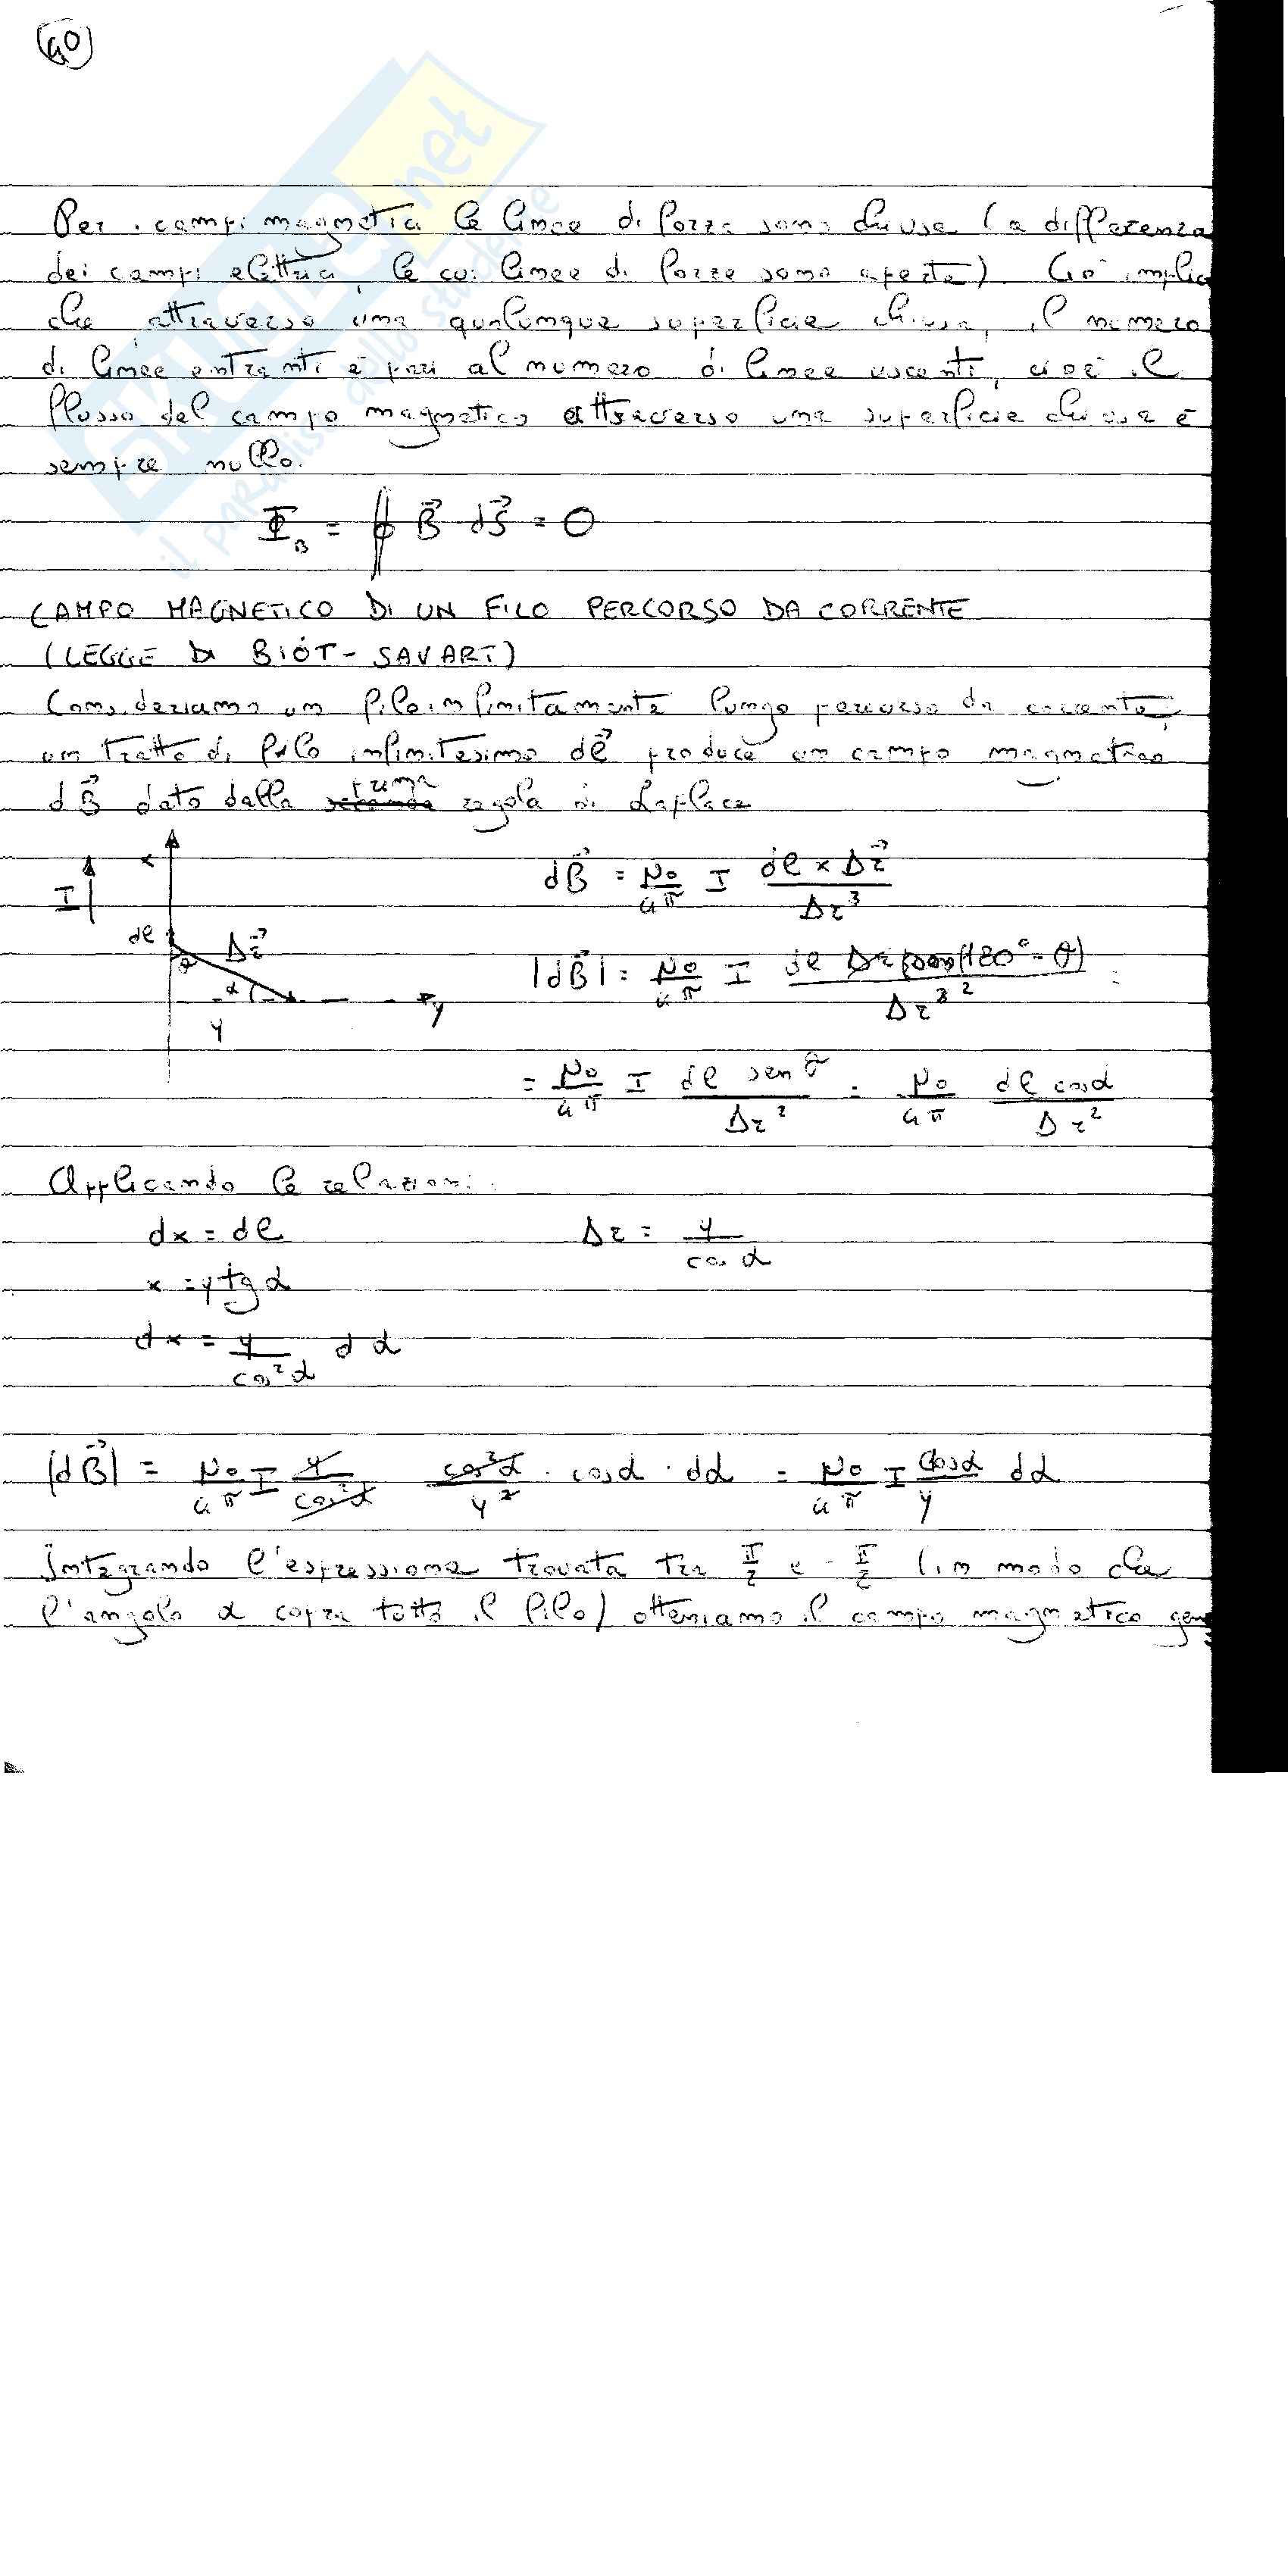 40
Per i campi magnetici le linee di forza sono chiuse (a differenza
dei campi elettrici, le cui linee di forze sono aperte). Ciò implica
che attraverso una qualunque superficie chiusa, il numero
di linee entranti è pari al numero di linee uscenti, cioè il
flusso del campo magnetico attraverso una superficie chiusa è
sempre nullo.
Φ_B = ∮ B⃗ dS⃗ = 0
CAMPO MAGNETICO DI UN FILO PERCORSO DA CORRENTE
(LEGGE DI BIOT-SAVART)
Consideriamo un filo infinitamente lungo percorso da corrente,
un tratto di filo infinitesimo dl⃗ produce un campo magnetico
prima
dB⃗ dato dalla seconda regola di Laplace
x
I
dB⃗ = μ₀/4π I dl × Δr⃗ / Δr³
dl Δr⃗
θ
α
y
y
|dB⃗| = μ₀/4π I dl Δr sen(180° - θ) / Δr³ ²
= μ₀/4π I dl sen θ / Δr² = μ₀/4π dl cosα / Δr²
Applicando le relazioni:
dx = dl Δr = y / cos α
x = y tg α
dx = y / cos²α dα
|dB⃗| = μ₀/4π I y/cos²α cos²α/y² · cosα · dα = μ₀/4π I cosα/y dα
Integrando l'espressione trovata tra π/2 e -π/2 (in modo che
l'angolo α copra tutto il filo) otteniamo il campo magnetico gen
skuola.net
il paradiso dello studente